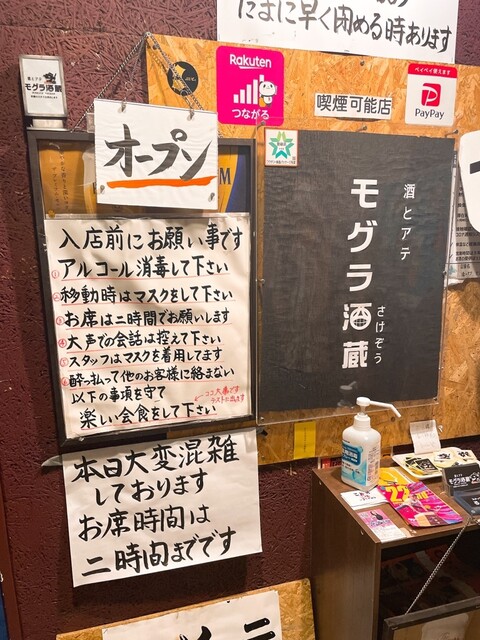 たまに早く閉める時あります
Rakuten
つながる
喫煙可能店
ペイペイ使えます
PayPay
酒とアテ
モグラ酒蔵
オープン
入店前にお願い事です
①アルコール消毒して下さい
②移動時はマスクをして下さい
③お席は二時間でお願いします
④大声での会話は控えて下さい
⑤スタッフはマスクを着用してます
⑥酔っ払って他のお客様に絡まない
以下の事項を守て
ココ大事です
テストに出ます
楽しい会食をして下さい
酒とアテ
モグラ酒蔵
さけぞう
本日大変混雑
しております
お席時間は
二時間までです